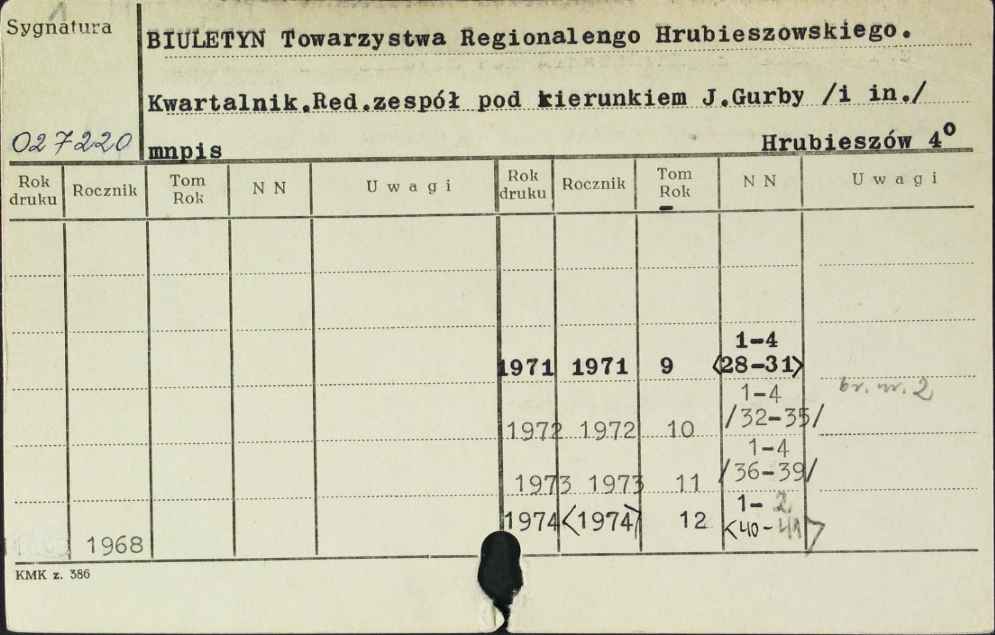 Sygnatura
BIULETYN Towarzystwa Regionalengo Hrubieszowskiego.
Kwartalnik.Red.zespół pod kierunkiem J.Gurby /i in./
027220
mnpis Hrubieszów 4º
Rok druku Rocznik Tom Rok NN Uwagi Rok druku Rocznik Tom Rok NN Uwagi
1-4
1971 1971 9 <28-31>
1-4 br. nr. 2
1972 1972 10 /32-35/
1-4
1973 1973 11 /36-39/
1-2
1974 <1974> 12 <40-41>
1968
KMK z. 386